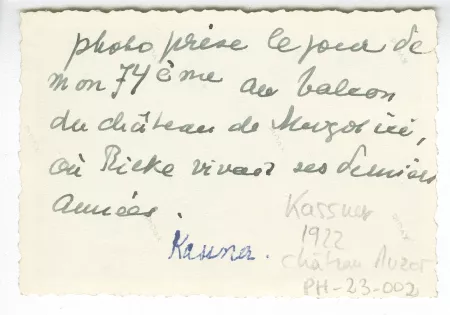 photo prise le jour de
mon 74ème au balcon
du château de Muzot ici,
où Rilke vivait ses derniers
années.
Kassner.
Kassner
1922
château Muzot
PH-23-002